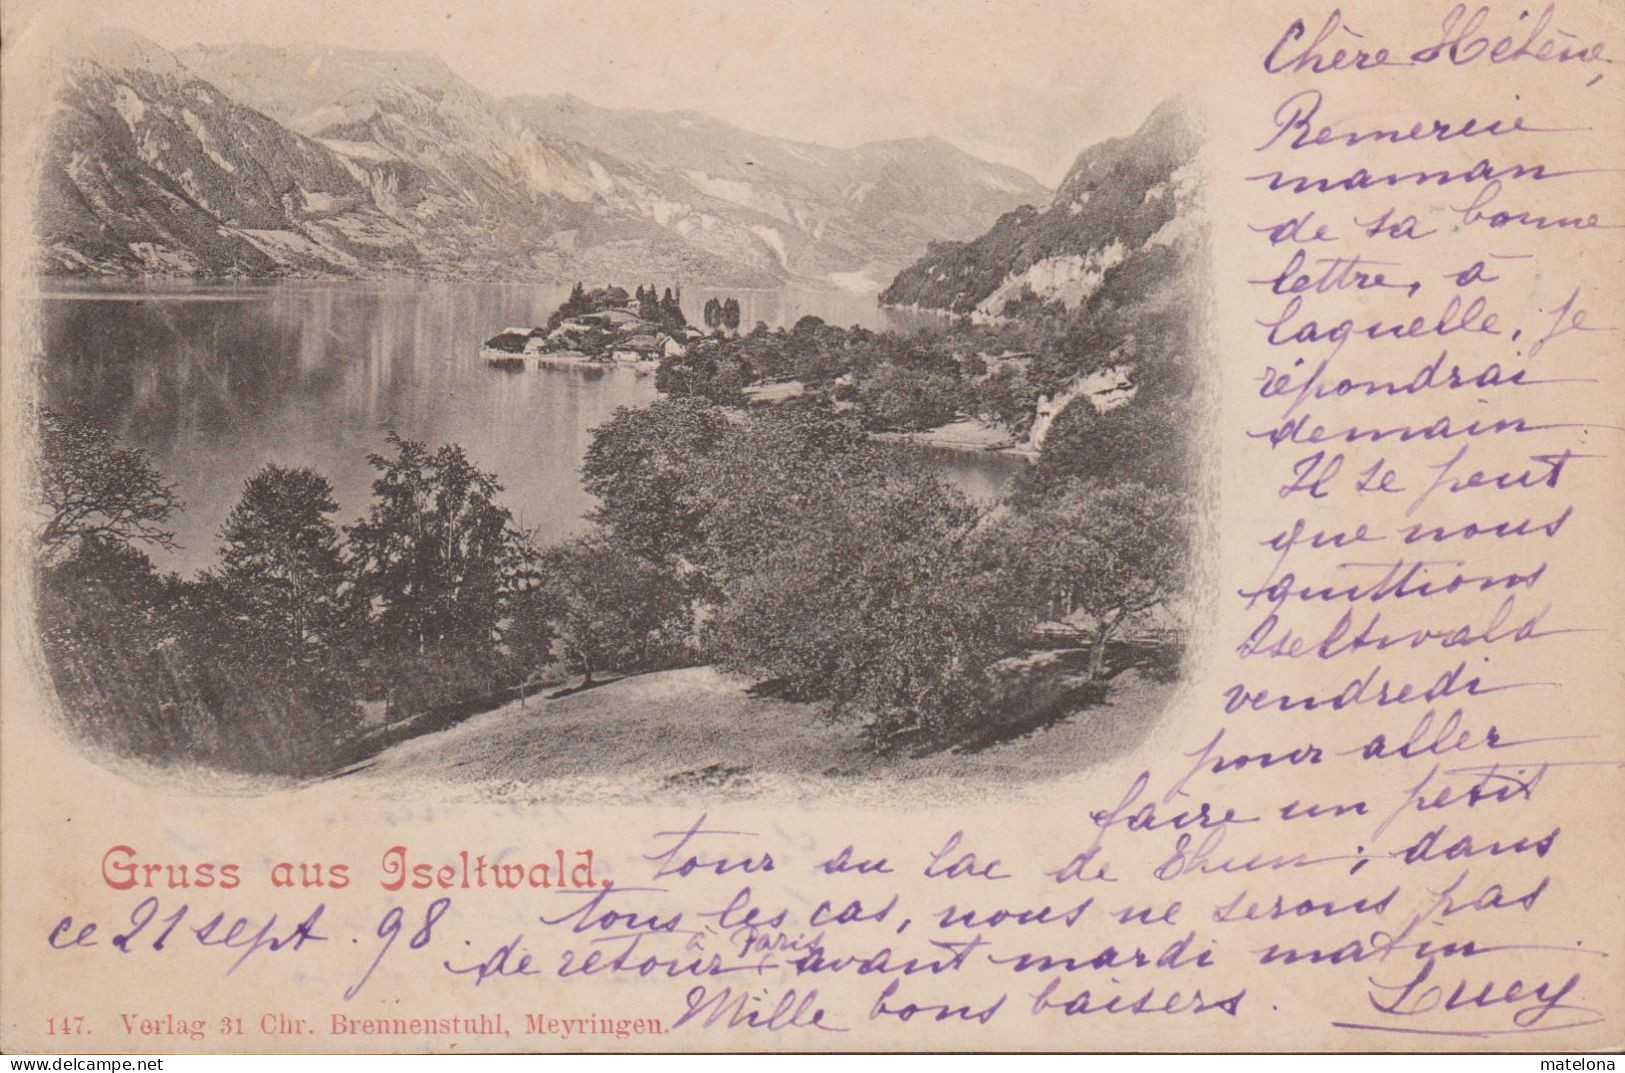 Chère Hélène,
Remercie
maman
de sa bonne
lettre, à
laquelle, je
répondrai
demain.
Il se peut
que nous
quittions
Iseltwald
vendredi
pour aller
faire un petit
tour au lac de Thun; dans
tous les cas, nous ne serons pas
de retour à Paris avant mardi matin.
Mille bons baisers. Lucy
Gruss aus Iseltwald.
ce 21 sept. 98.
147. Verlag 31 Chr. Brennenstuhl, Meyringen.
delcampe.net
matelona